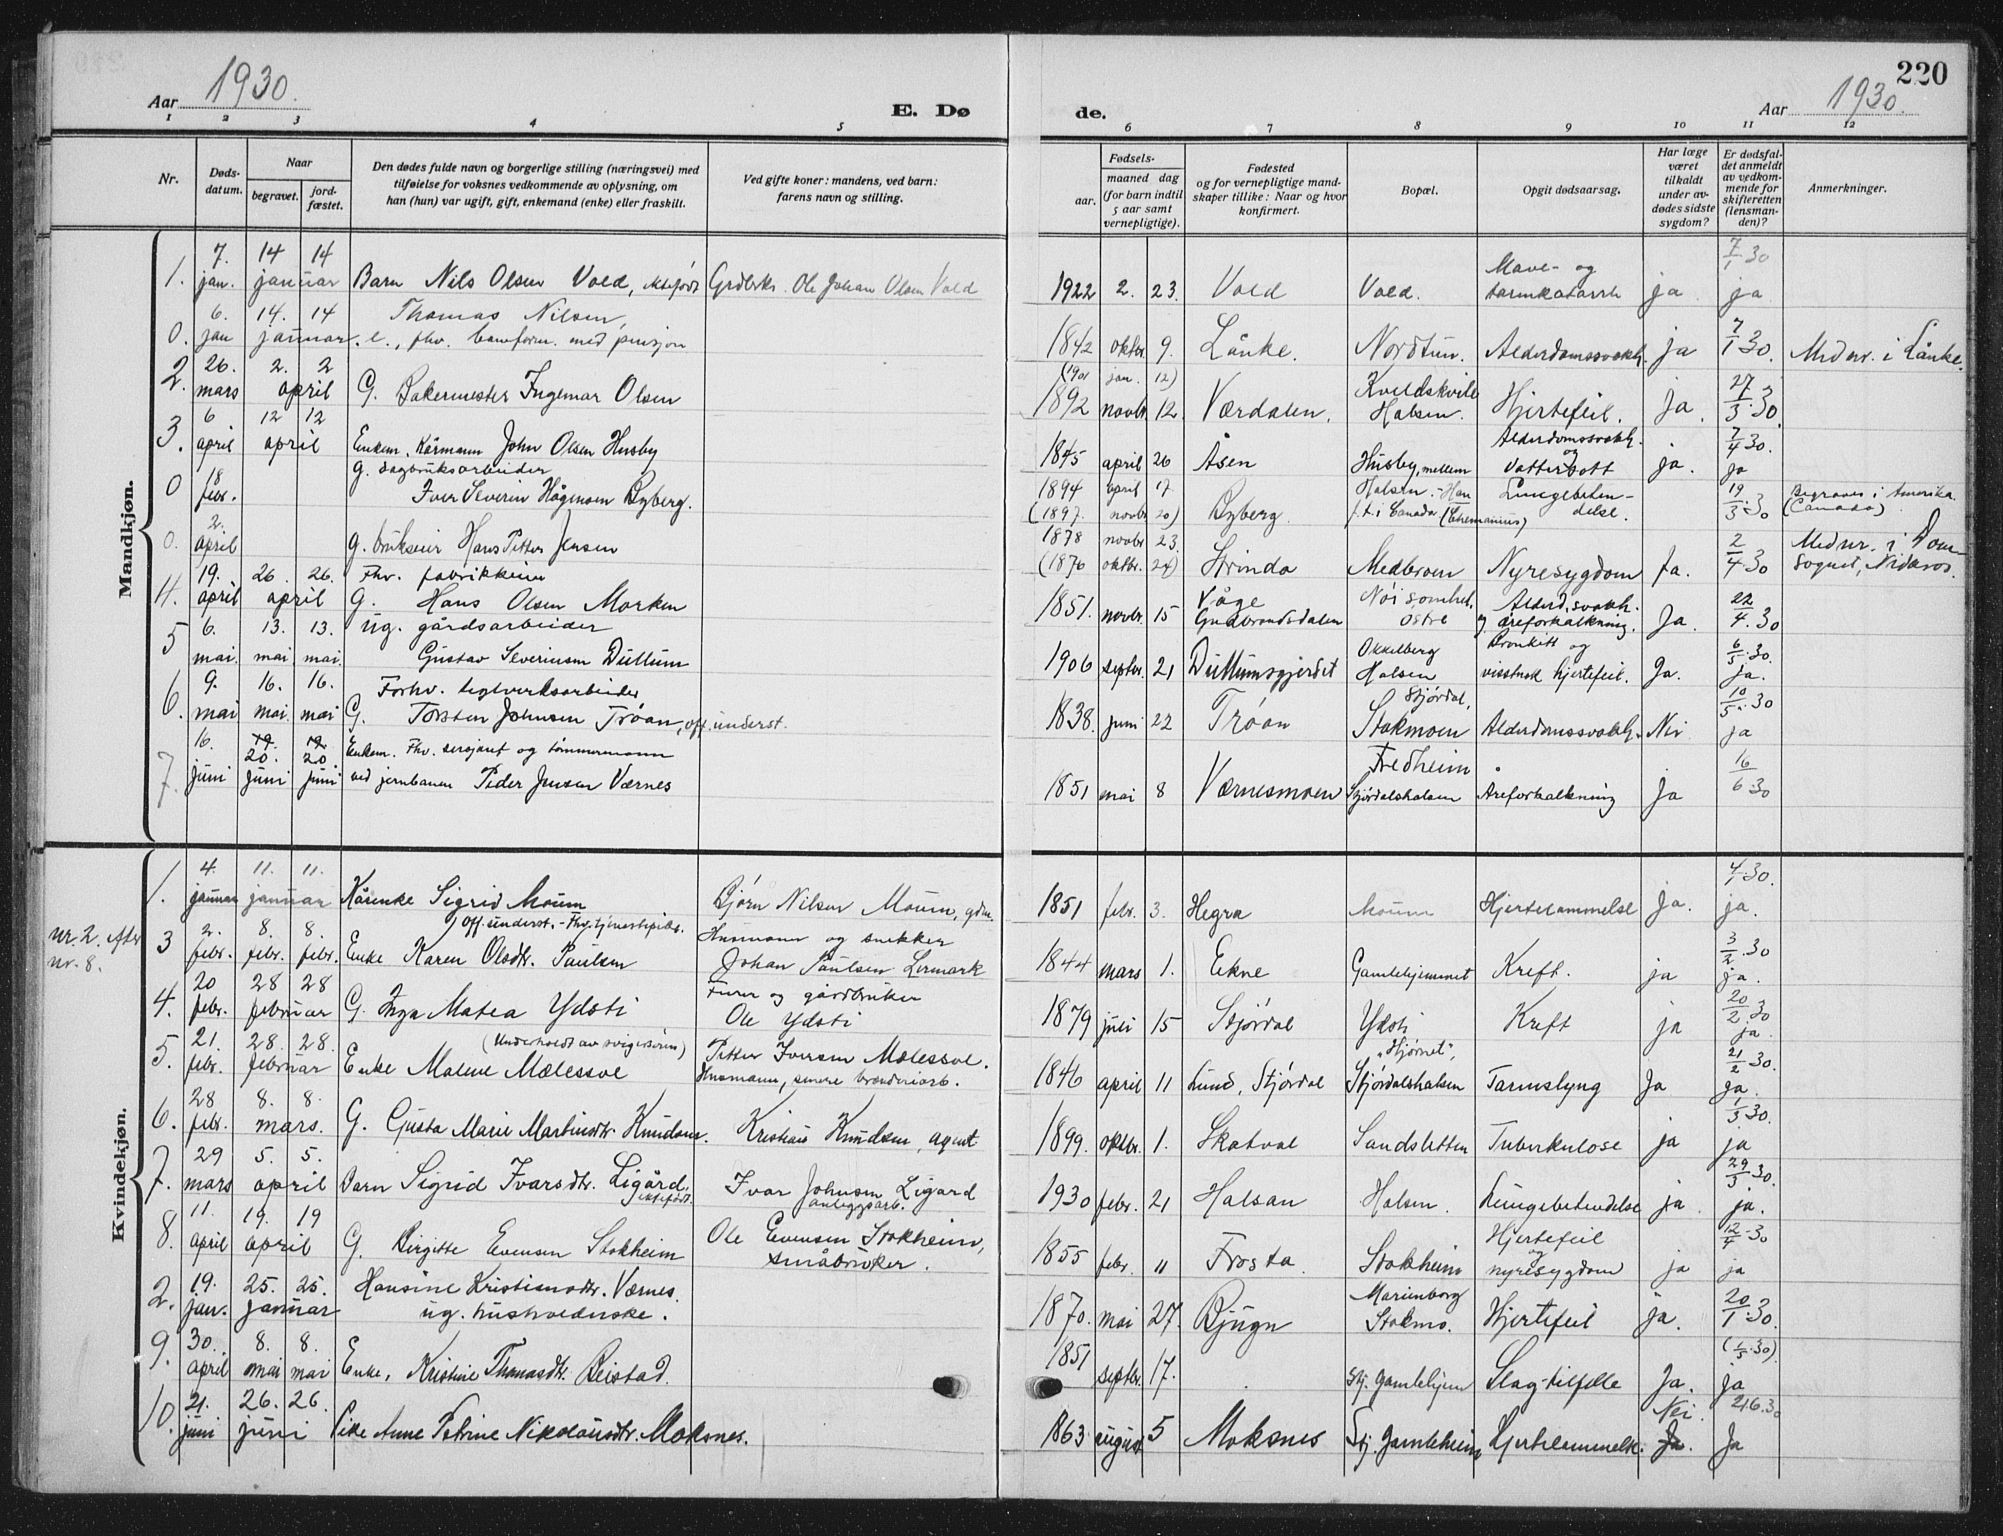 220
Aar 1930.
E. Dø
de.
Aar 1930.
1 2 3 4 5 6 7 8 9 10 11 12
Nr.
Døds-datum.
Naar
begravet.
jord-fæstet.
Den dødes fulde navn og borgerlige stilling (næringsvei) med
tilføielse for voksnes vedkommende av oplysning, om
han (hun) var ugift, gift, enkemand (enke) eller fraskilt.
Ved gifte koner: mandens, ved barn:
farens navn og stilling.
Fødsels-
aar.
maaned dag
(for barn indtil
5 aar samt
vernepligtige).
Fødested
og for vernepligtige mand-
skaper tillike: Naar og hvor
konfirmert.
Bopæl.
Opgit dødsaarsag.
Har læge
været
tilkaldt
under av-
dødes sidste
sygdom?
Er dødsfal-
det anmeldt
av vedkom-
mende for
skifteretten
(lensman-
den)?
Anmerkninger.
Mandkjøn.
1. 7. jan. 14 14 januar Barn Nils Olsen Vold, ektefødt Grdbrkr. Ole Johan Olsen Vold 1922 2. 23. Vold Vold. Mave- og tarmkatarrh ja 7/1 30 ja
0. 6. jan 14. 14 januar. Thomas Nilsen, e., fhv. baneform. med pensjon 1842 oktbr. 9. Lånke. Nordtun. Alderdomssvakh. ja 7/1 30. Mednr. i Lånke.
2. 26. mars 2. 2 april G. Bakermester Ingemar Olsen (1901 jan. 12) 1892 novbr 12. Værdalen. Kveldskvile Halsen. Hjertefeil. ja. 27/3 30.
3. 6 april 12 12 april Enkem. Kårmann John Olsen Husby 1845 april 26 Åsen Husby, mellem Alderdomssvakh. og Vattersott ja. 7/4 30. ja
0 18 febr. g. dagbruksarbeider Iver Severin Hågensen Byberg. 1894 april 17 (1897. novbr 20) Byberg. Halsen. - Han f.t. i Canada Lungebeten-delse. 19/3 30 Begraves i Amerika (Canada).
0. 2. april g. brukseier Hans Petter Jensen 1878 novbr 23. (1876 oktbr. 24) Strinda Medbroen Nyresygdom Ja. 2/4 30 Mednr. i Dom-sognet, Nidaros.
4. 19. april 26. 26. april Fhv. fabrikkeier G. Hans Olsen Morken 1851. novbr. 15 Våge Gudbrandsdalen østre Alderd.svakh. og åreforkalkning. Ja. 22/4 30
5 6. mai. 13. 13. mai mai. ug. gårdsarbeider Gustav Severinsen Dullum 1906 septbr. 21 Dullumsgjerdet Okkelberg Halsen Bronkitt og visstnok hjertefeil. Ja. 6/5 30. Ja.
6. 9. mai 16. 16. mai mai Forhv. teglverksarbeider G. Torsten Johnsen Trøan, off. underst. 1838. juni 22 Trøan Stjørdal, Stokmoen Alderdomssvakh. Nei 10/5 30 ja
7. 16. juni 19. 19. 20. 20. juni juni Enkem. Fhv. sersjant og tømmermann ved jernbanen Peder Jensen Værnes 1851 mai 8 Værnesmoen Fredheim Stjørdalshalsen Åreforkalkning Ja 16/6 30
Kvindekjøn.
1. 4. januar 11. 11. januar Kårenke Sigrid Moum Bjørn Nilsen Moum, gdm. 1851 febr. 3. Hegra Moum Hjertelammelse ja. 4/1 30. ja.
nr. 2. efter
nr. 8.
3 2. febr. 8. 8. febr. febr. off. underst. - Fhv. tjenestepike. Enke Karen Olsdtr. Paulsen Husmann og snekker Johan Paulsen Lermark 1844 mars 1. Ekne Gamlehjemmet Kreft. ja 3/2 30 ja.
4. 20 febr. 28 28 februar G. Inga Matea Ydsti Furer og gårdbruker Ole Ydsti 1879 juli 15 Stjørdal Ydsti Kreft ja 20/2 30 ja.
5. 21. febr. 28. 28. februar (Underholdt av svigersønn) Enke Malene Mælessve Petter Iversen Mælessve. Husmann, senere brænderiarb. 1846 april 11 Lund, Stjørdal "Hjørnet", Stjørdalshalsen Tarmslyng Ja 21/2 30. Ja.
6. 28 febr. 8. 8. mars. G. Gusta Marie Martinsdtr. Knudsen. Kristian Knudsen, agent 1899. oktbr. 1. Skatval Sandsletten Tuberkulose ja 1/3 30. ja
7. 29 mars 5. 5. april Barn Sigrid Ivarsdtr. Ligård, ektefødt. Ivar Johnsen Ligard anleggsarb. 1930 febr. 21 Halsan Halsen. Lungebetendelse ja. 29/3 30. ja.
8. 11. april 19. 19 april G. Birgitte Evensen Stokheim Ole Evensen Stokheim, småbruker. 1855 febr. 11 Frosta. Stokheim Hjertefeil og nyresygdom ja 12/4 30 ja
2. 19. jan. 25. 25. januar Hansine Kristiansdtr. Værnes. ug. husholderske. 1870. mai 27. Bjugn Marienborg Stokmo. Hjertefeil ja. 20/1 30.
9. 30. april 8. 8. mai mai Enke, Kristine Thomasdtr. Reistad. 1851 septbr. 17. Stj. gamlehjem Slag-tilfelle Ja. (1/5 30). ja
10. 21. juni 26. 26. juni Pike Anne Petrine Nikolausdtr. Moksnes. 1863 august 5 Moksnes Stj. Gamlehjem Hjertelammelse. Nei. Ja. 21/6.30 Ja